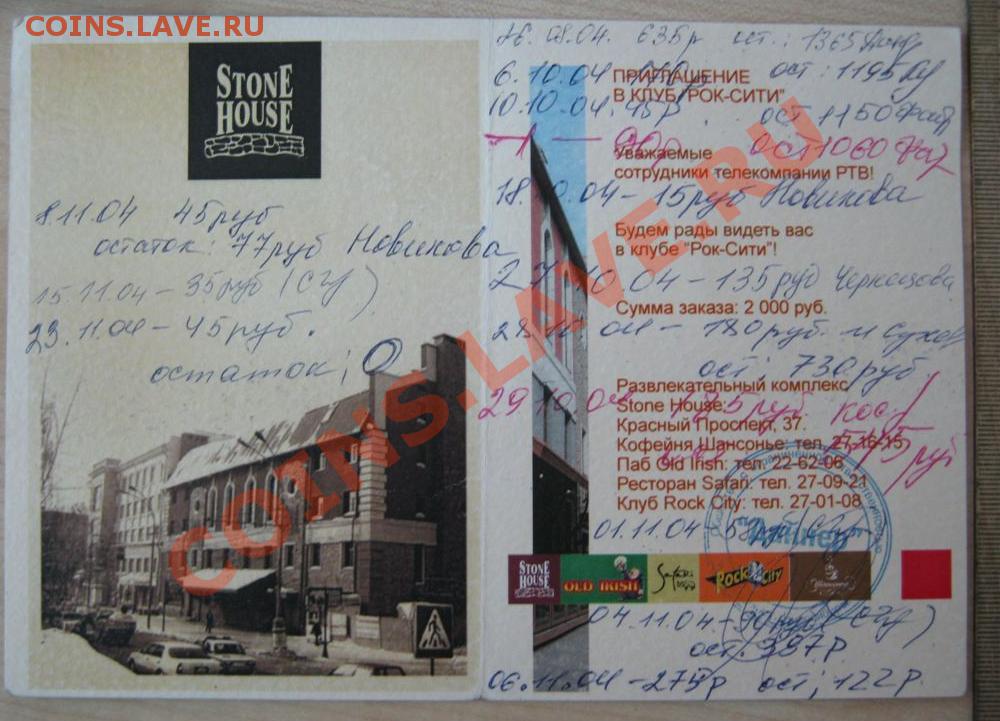 COINS.LAVE.RU
STONE
HOUSE
8.11.04 45руб
остаток: 77руб Новикова
15.11.04 – 35руб (СГУ)
23.11.04 – 45руб.
остаток: 0
08.04. 635р ост.: 1365
6.10.04 ост: 1195
10.10.04. 45р. ост 1150
90р ост 1060
ПРИГЛАШЕНИЕ
В КЛУБ "РОК-СИТИ"
Уважаемые
сотрудники телекомпании РТВ!
18.10.04 – 15руб Новикова
Будем рады видеть вас
в клубе "Рок-Сити"!
27.10.04 – 135руб
Сумма заказа: 2 000 руб.
28.10.04 – 180руб.
ост: 730руб.
Развлекательный комплекс
Stone House:
29.10.04
Красный Проспект, 37.
Кофейня Шансонье: тел. 27-16-15
Паб Old Irish: тел. 22-62-06
Ресторан Safari: тел. 27-09-21
Клуб Rock City: тел. 27-01-08
01.11.04
STONE
HOUSE
OLD IRISH
Safari
ROCK CITY
04.11.04 – 90руб (СГУ)
ост: 397р
06.11.04 – 275р ост; 122р.
COINS.LAVE.RU